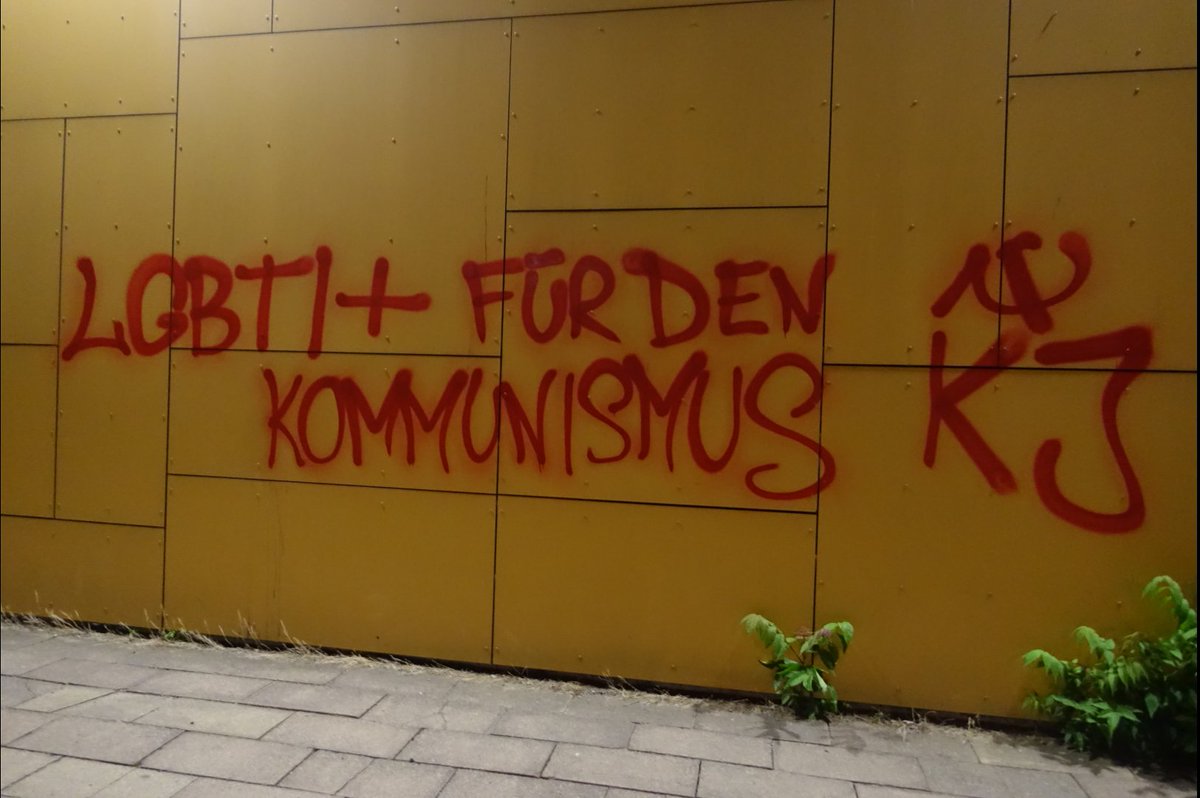 LGBTI+ FÜR DEN
KOMMUNISMUS
KJ